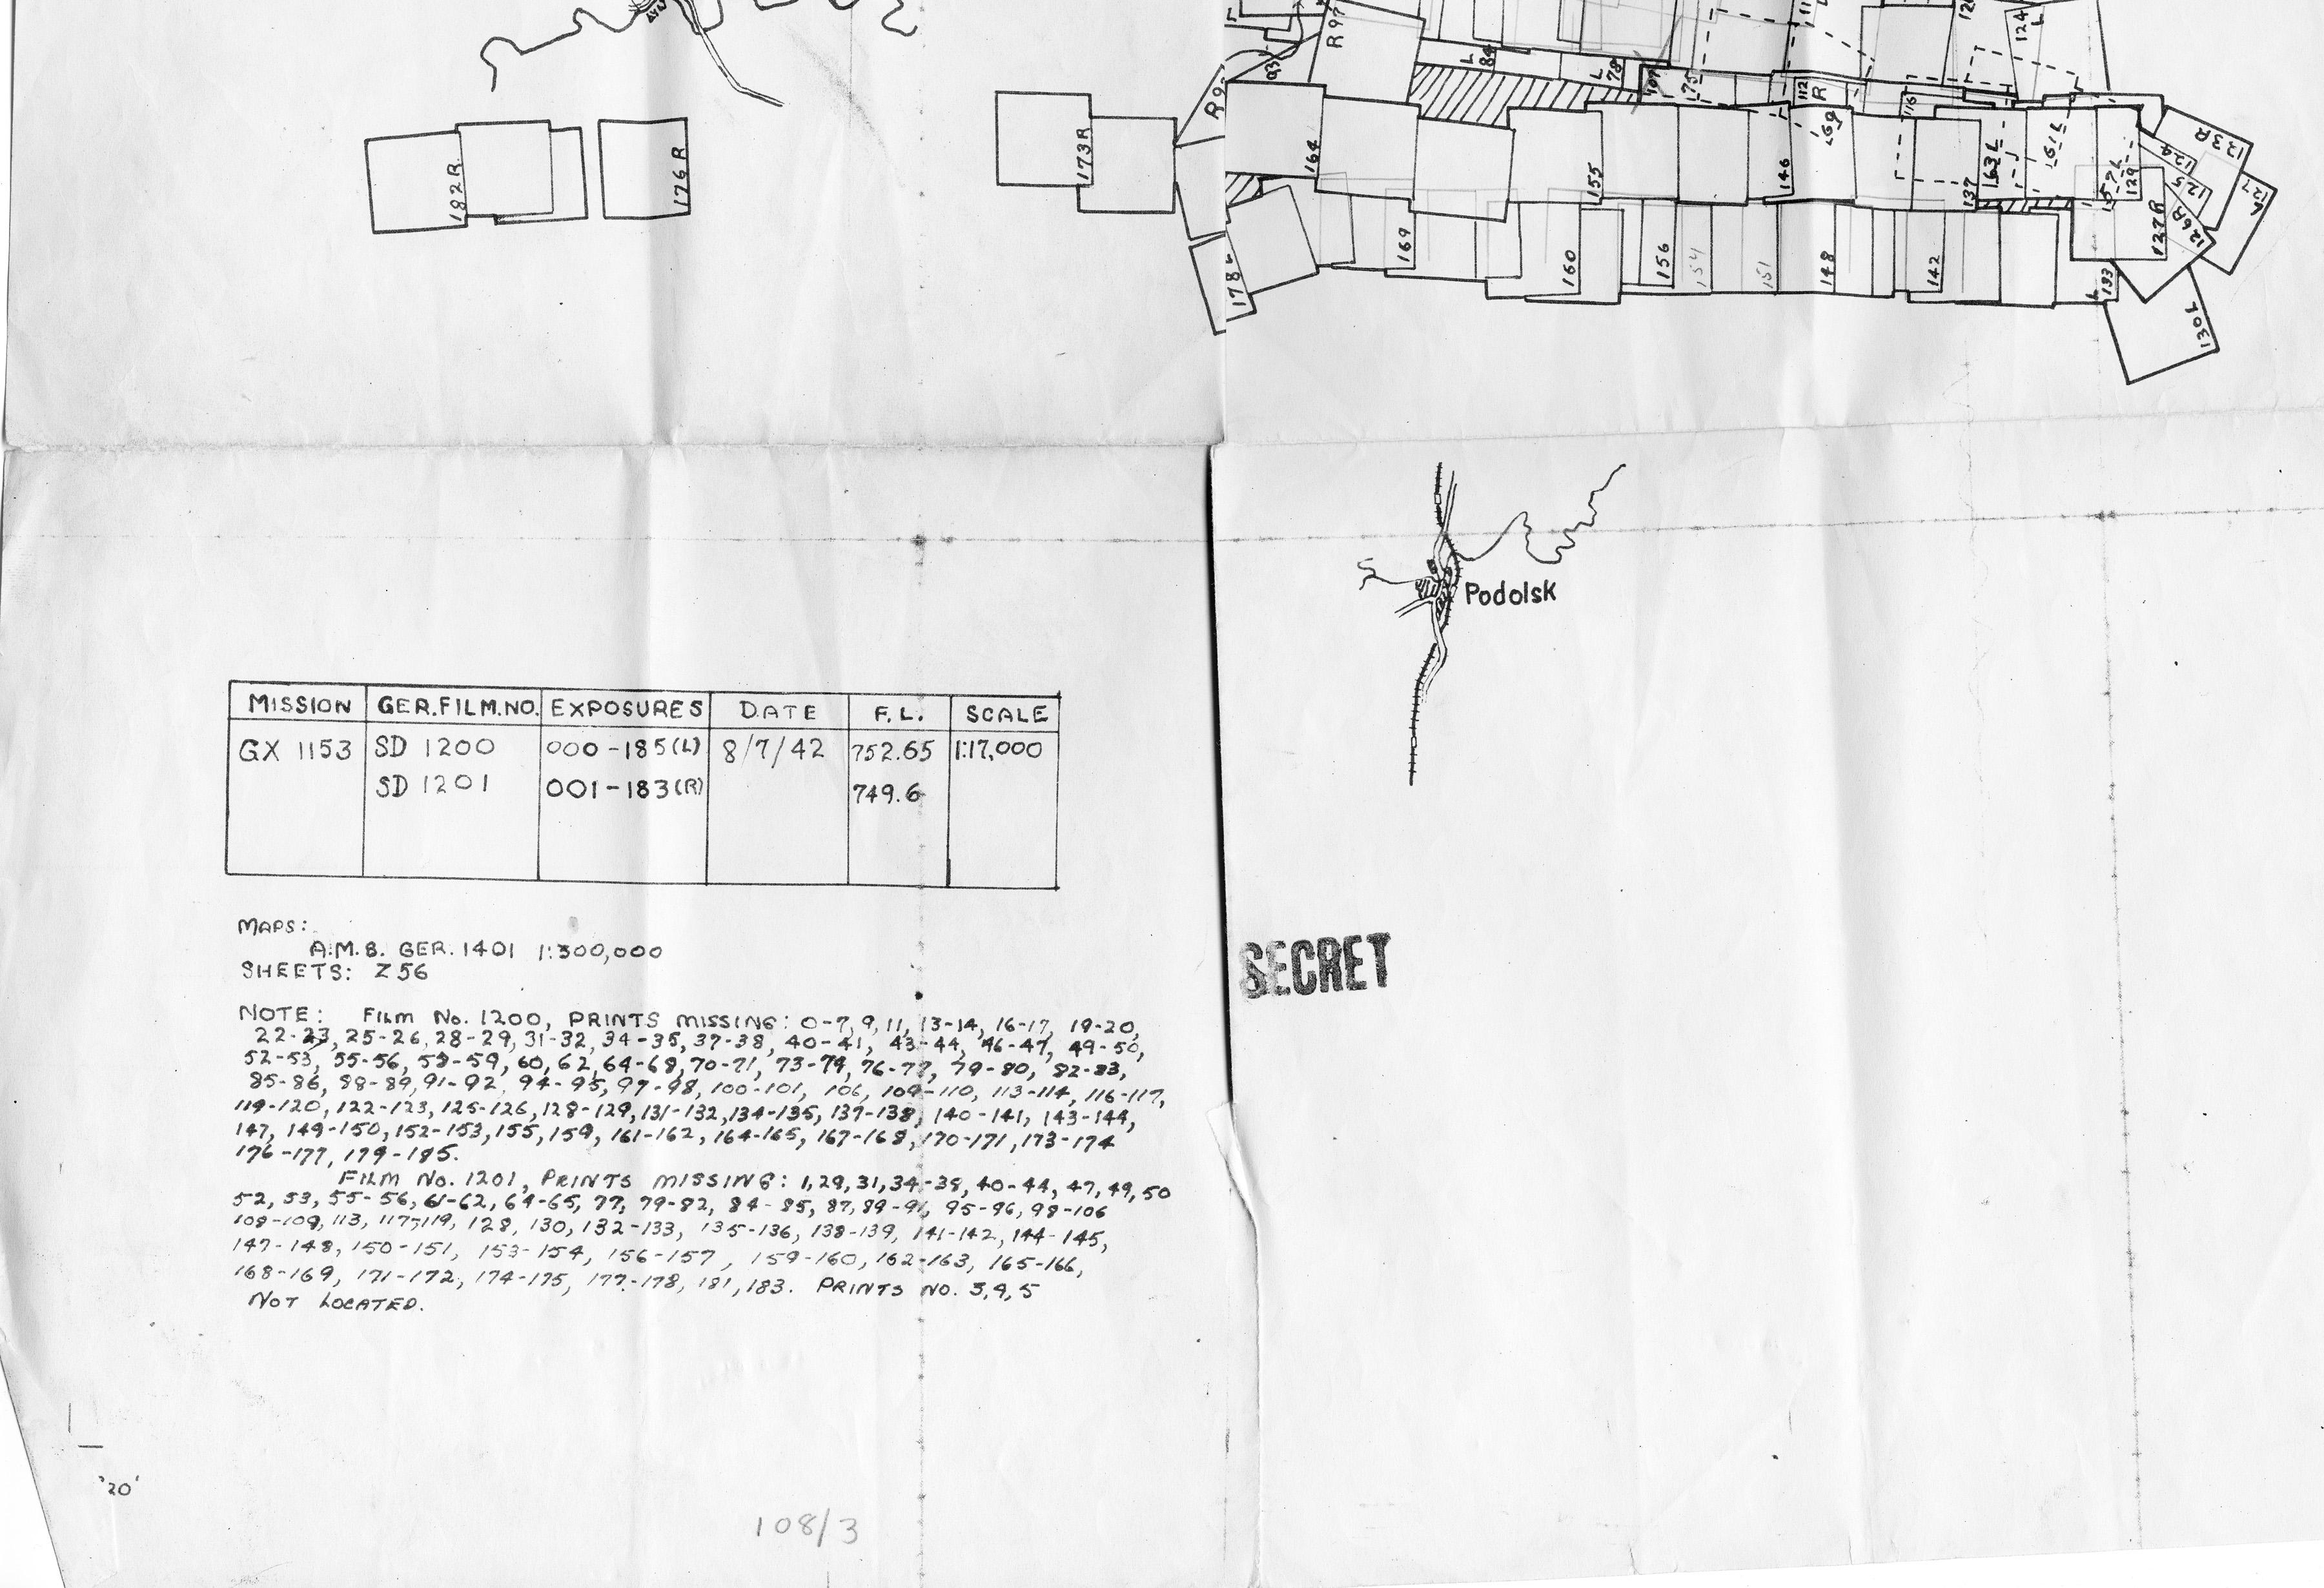 R97
L 84
L 78
112
R
116
124 L
123 R
124
125
127
126R
127R
129
157 L
133
L
130L
182R
176R
173R
178 L
164
155
146
69
137
163 L
61 L
169
160
156
154
151
148
142
Podolsk
MISSION GER.FILM.NO. EXPOSURES DATE F.L. SCALE
GX 1153 SD 1200 000-185(L) 8/7/42 752.65 1:17,000
SD 1201 001-183(R) 749.6
MAPS:
A.M.S. GER. 1401 1:300,000
SHEETS: Z56
SECRET
NOTE: FILM No. 1200, PRINTS MISSING: 0-7, 9, 11, 13-14, 16-17, 19-20,
22-23, 25-26, 28-29, 31-32, 34-35, 37-38, 40-41, 43-44, 46-47, 49-50,
52-53, 55-56, 58-59, 60, 62, 64-68, 70-71, 73-74, 76-77, 79-80, 82-83,
85-86, 88-89, 91-92, 94-95, 97-98, 100-101, 106, 109-110, 113-114, 116-117,
119-120, 122-123, 125-126, 128-129, 131-132, 134-135, 137-138, 140-141, 143-144,
147, 149-150, 152-153, 155, 159, 161-162, 164-165, 167-168, 170-171, 173-174
176-177, 179-185.
FILM No. 1201, PRINTS MISSING: 1, 29, 31, 34-38, 40-44, 47, 49, 50
52, 53, 55-56, 61-62, 64-65, 77, 79-82, 84-85, 87, 89-91, 95-96, 98-106
108-109, 113, 117-119, 128, 130, 132-133, 135-136, 138-139, 141-142, 144-145,
147-148, 150-151, 153-154, 156-157, 159-160, 162-163, 165-166,
168-169, 171-172, 174-175, 177-178, 181, 183. PRINTS NO. 3, 4, 5
NOT LOCATED.
'20'
108/3